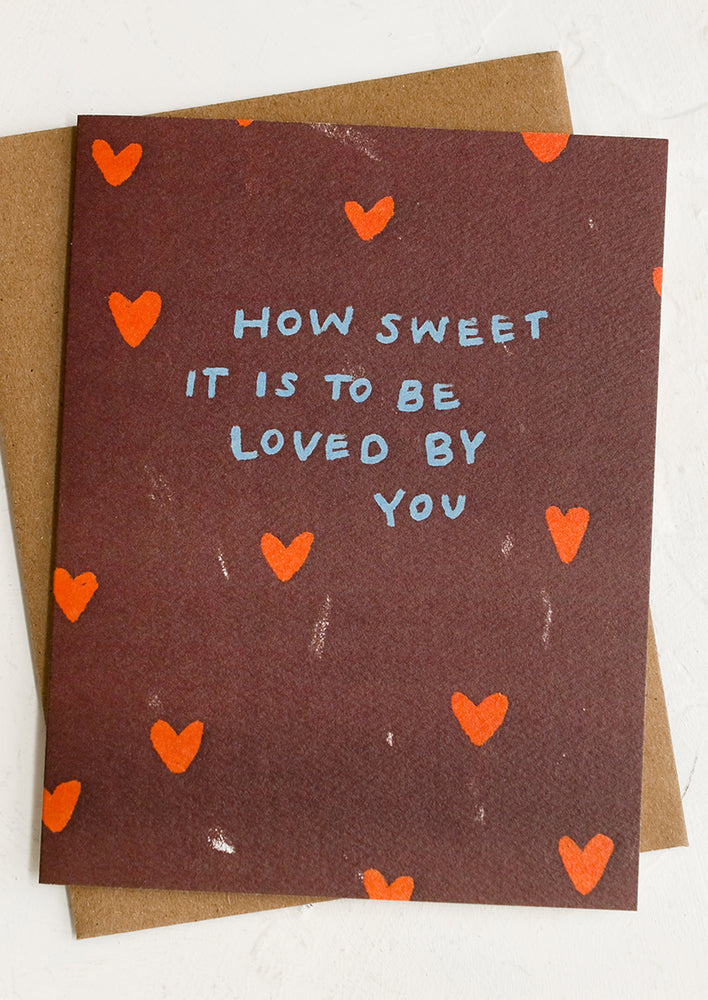 HOW SWEET
IT IS TO BE
LOVED BY
YOU